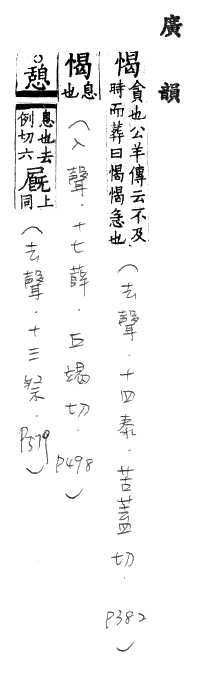 廣韻
愒 貪也公羊傳云不及時而葬曰愒愒急也（去聲．十四泰．苦蓋切．P382）
愒 息也（入聲．十七薛．丘竭切．P498）
憩 息也去例切六 㞒上同（去聲．十三祭．P379）